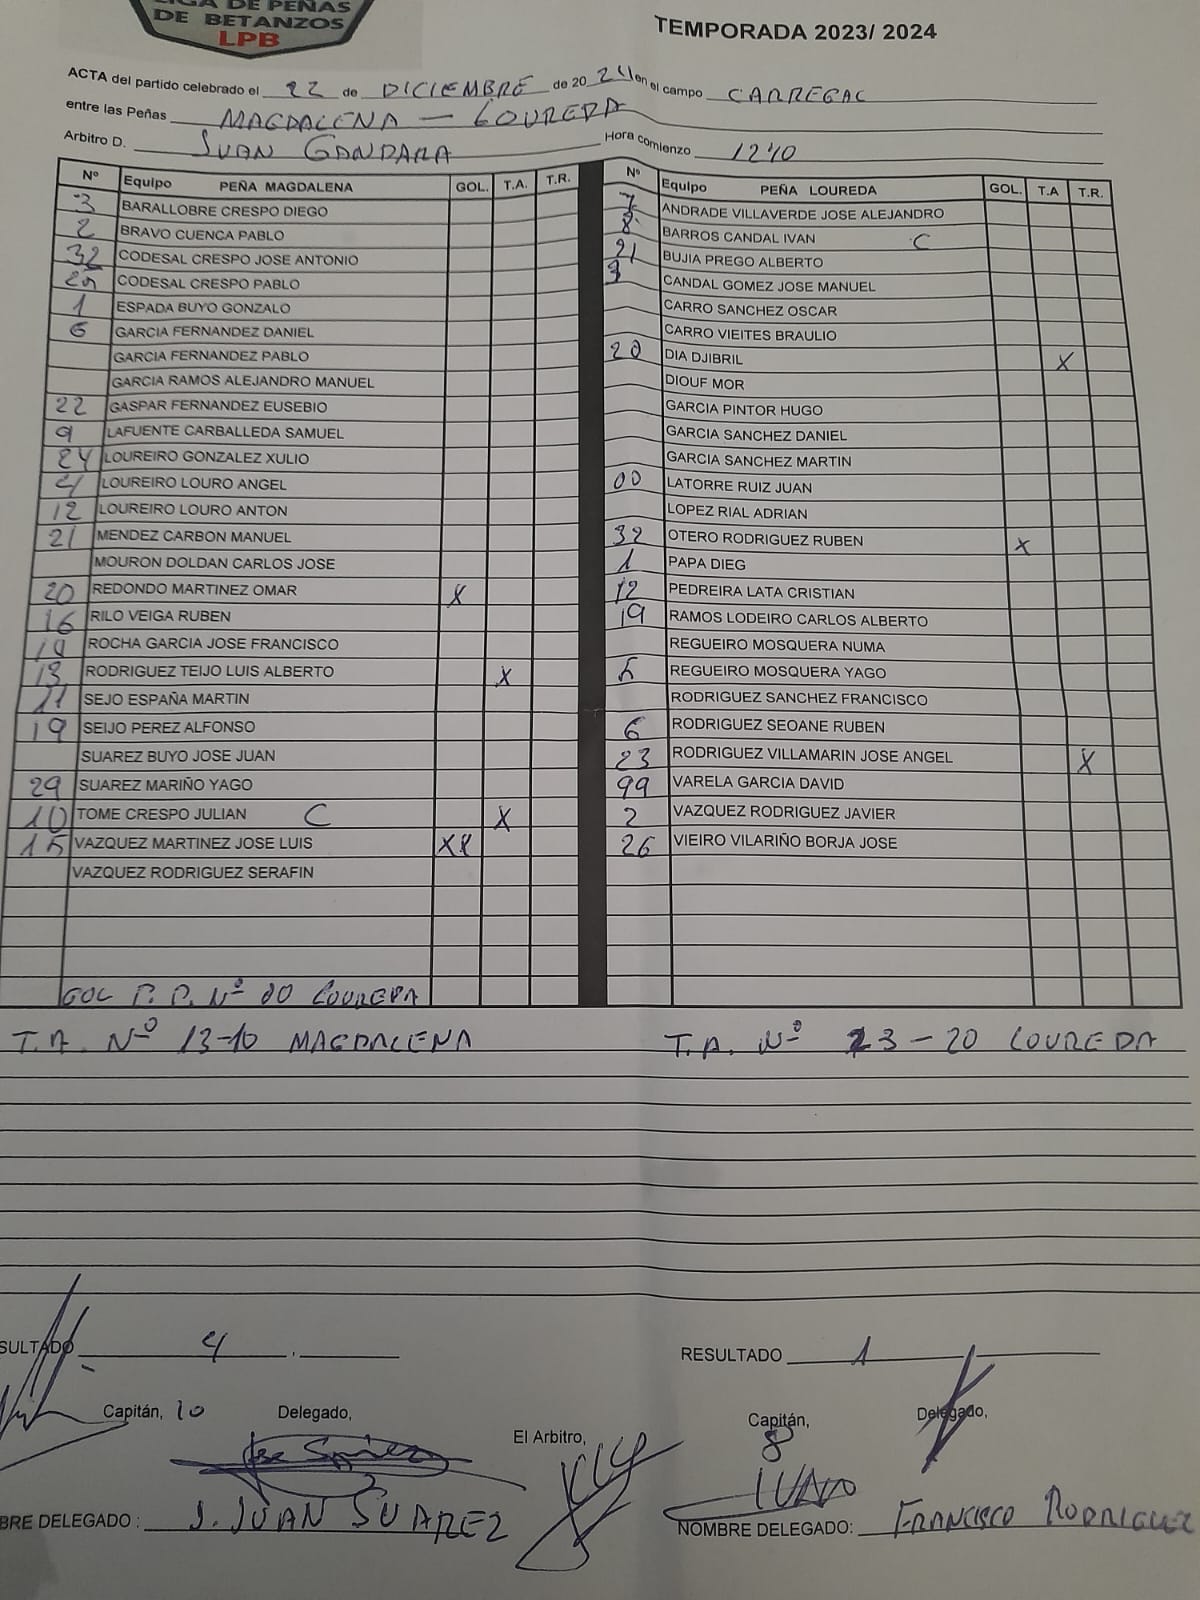 LIGA DE PEÑAS
DE BETANZOS
LPB
TEMPORADA 2023/ 2024
ACTA del partido celebrado el 22 de DICIEMBRE de 20 24 en el campo CARREGAL
entre las Peñas MAGDALENA — LOUREDA
Arbitro D. JUAN GANDARA Hora comienzo 12'40
Nº Equipo PEÑA MAGDALENA GOL. T.A. T.R.
3 BARALLOBRE CRESPO DIEGO
2 BRAVO CUENCA PABLO
32 CODESAL CRESPO JOSE ANTONIO
25 CODESAL CRESPO PABLO
1 ESPADA BUYO GONZALO
6 GARCIA FERNANDEZ DANIEL
GARCIA FERNANDEZ PABLO
GARCIA RAMOS ALEJANDRO MANUEL
22 GASPAR FERNANDEZ EUSEBIO
9 LAFUENTE CARBALLEDA SAMUEL
24 LOUREIRO GONZALEZ XULIO
4 LOUREIRO LOURO ANGEL
12 LOUREIRO LOURO ANTON
21 MENDEZ CARBON MANUEL
MOURON DOLDAN CARLOS JOSE
20 REDONDO MARTINEZ OMAR X
16 RILO VEIGA RUBEN
ROCHA GARCIA JOSE FRANCISCO
13 RODRIGUEZ TEIJO LUIS ALBERTO X
11 SEJO ESPAÑA MARTIN
19 SEIJO PEREZ ALFONSO
SUAREZ BUYO JOSE JUAN
29 SUAREZ MARIÑO YAGO
10 TOME CRESPO JULIAN C X
15 VAZQUEZ MARTINEZ JOSE LUIS XX
VAZQUEZ RODRIGUEZ SERAFIN
GOL P.P. Nº 00 LOUREDA
T.A. Nº 13-10 MAGDALENA
Nº Equipo PEÑA LOUREDA GOL. T.A T.R.
7 ANDRADE VILLAVERDE JOSE ALEJANDRO
8 BARROS CANDAL IVAN C
21 BUJIA PREGO ALBERTO
9 CANDAL GOMEZ JOSE MANUEL
CARRO SANCHEZ OSCAR
CARRO VIEITES BRAULIO
20 DIA DJIBRIL X
DIOUF MOR
GARCIA PINTOR HUGO
GARCIA SANCHEZ DANIEL
GARCIA SANCHEZ MARTIN
00 LATORRE RUIZ JUAN
LOPEZ RIAL ADRIAN
32 OTERO RODRIGUEZ RUBEN X
1 PAPA DIEG
12 PEDREIRA LATA CRISTIAN
19 RAMOS LODEIRO CARLOS ALBERTO
REGUEIRO MOSQUERA NUMA
5 REGUEIRO MOSQUERA YAGO
RODRIGUEZ SANCHEZ FRANCISCO
6 RODRIGUEZ SEOANE RUBEN
23 RODRIGUEZ VILLAMARIN JOSE ANGEL X
99 VARELA GARCIA DAVID
2 VAZQUEZ RODRIGUEZ JAVIER
26 VIEIRO VILARIÑO BORJA JOSE
T.A. Nº 23-20 LOUREDA
SULTADO 4
Capitán, 10 Delegado,
El Arbitro,
BRE DELEGADO : J. JUAN SUAREZ
RESULTADO 1
Capitán, Delegado,
8
IVAN
NOMBRE DELEGADO: FRANCISCO RODRIGUEZ